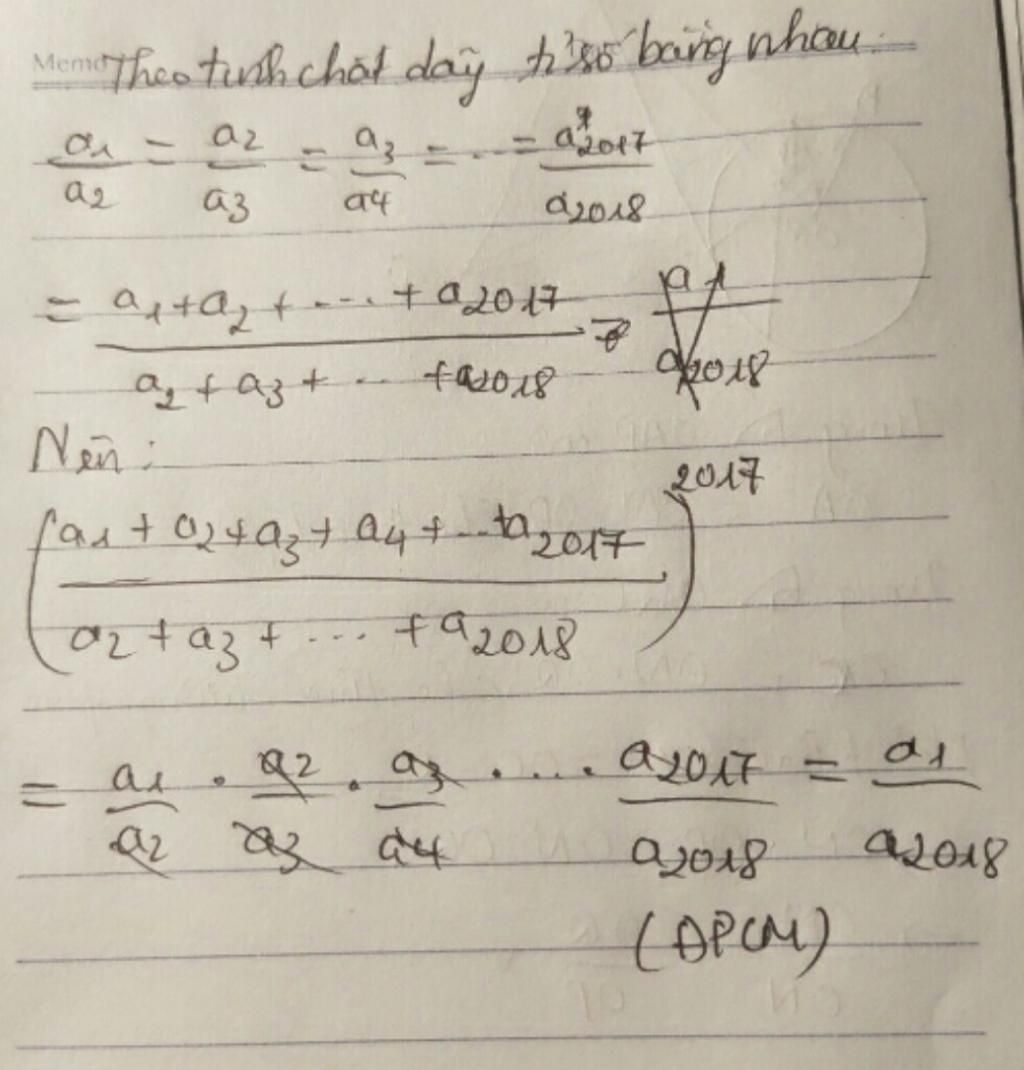 Memo Theo tính chất dãy tỉ số bằng nhau.
a1/a2 = a2/a3 = a3/a4 = ... = a2017/a2018
= (a1 + a2 + ... + a2017)/(a2 + a3 + ... + a2018) a1/a2018
Nên:
((a1 + a2 + a3 + a4 + ... + a2017)/(a2 + a3 + ... + a2018))^2017
= a1/a2 . a2/a3 . a3/a4 . ... . a2017/a2018 = a1/a2018
(ĐPCM)